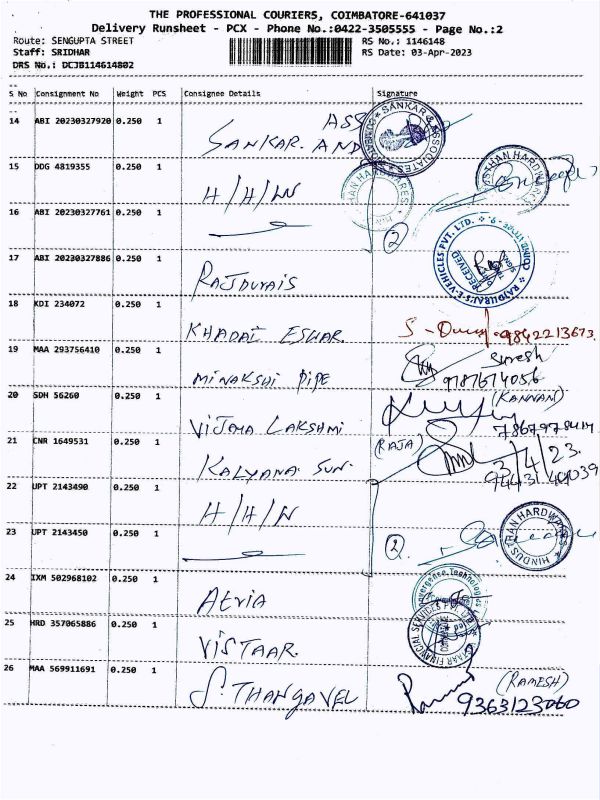 THE PROFESSIONAL COURIERS, COIMBATORE-641037
Delivery Runsheet - PCX - Phone No.:0422-3505555 - Page No.:2
Route: SENGUPTA STREET RS No.: 1146148
Staff: SRIDHAR RS Date: 03-Apr-2023
DRS No.: DCJB114614802
S No Consignment No Weight PCS Consignee Details Signature
14 ABI 20230327920 0.250 1 SANKAR. AND ASS SANKAR & ASSOCIATES
15 DDG 4819355 0.250 1 H/H/W
16 ABI 20230327761 0.250 1 2
17 ABI 20230327886 0.250 1 RAJDURAIS RECEIVED
18 KDI 234072 0.250 1 KHADAI ESWAR. 9842213673.
19 MAA 293756410 0.250 1 MINAKSHI PIPE Suresh
20 SDH 56260 0.250 1 VIJAYA LAKSHMI (KANNAN)
21 CNR 1649531 0.250 1 KALYANA SUN. (RAJA) 3/4/23.
22 UPT 2143490 0.250 1 H/H/W
23 UPT 2143450 0.250 1 2. HINDUSTHAN HARDWARES
24 IXM 502968102 0.250 1 Atria
25 HRD 357065886 0.250 1 VISTAAR.
26 MAA 569911691 0.250 1 S THANGAVEL (RAMESH)
9363123060